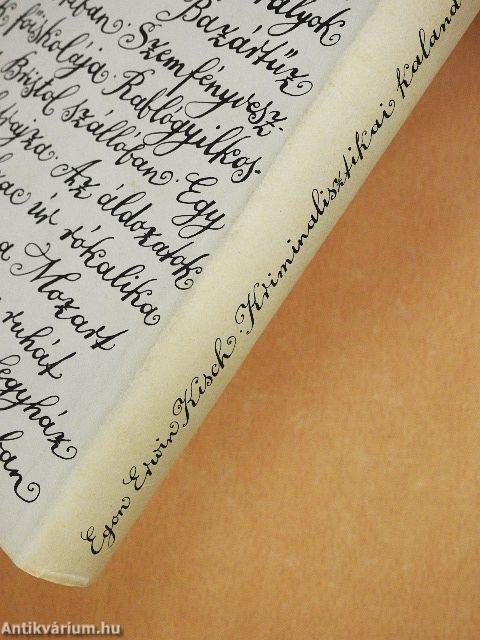 ályok
Bazártűz
ban. Szemfényvesz-
főiskolája. Rablógyilkos-
Bristol szállóban. Egy
rajza. Az áldozatok
zac úr rókalika
a Mozart
ruhát
egyház
ban
Egon Erwin Kisch. Kriminalisztikai kaland
Antikvárium.hu